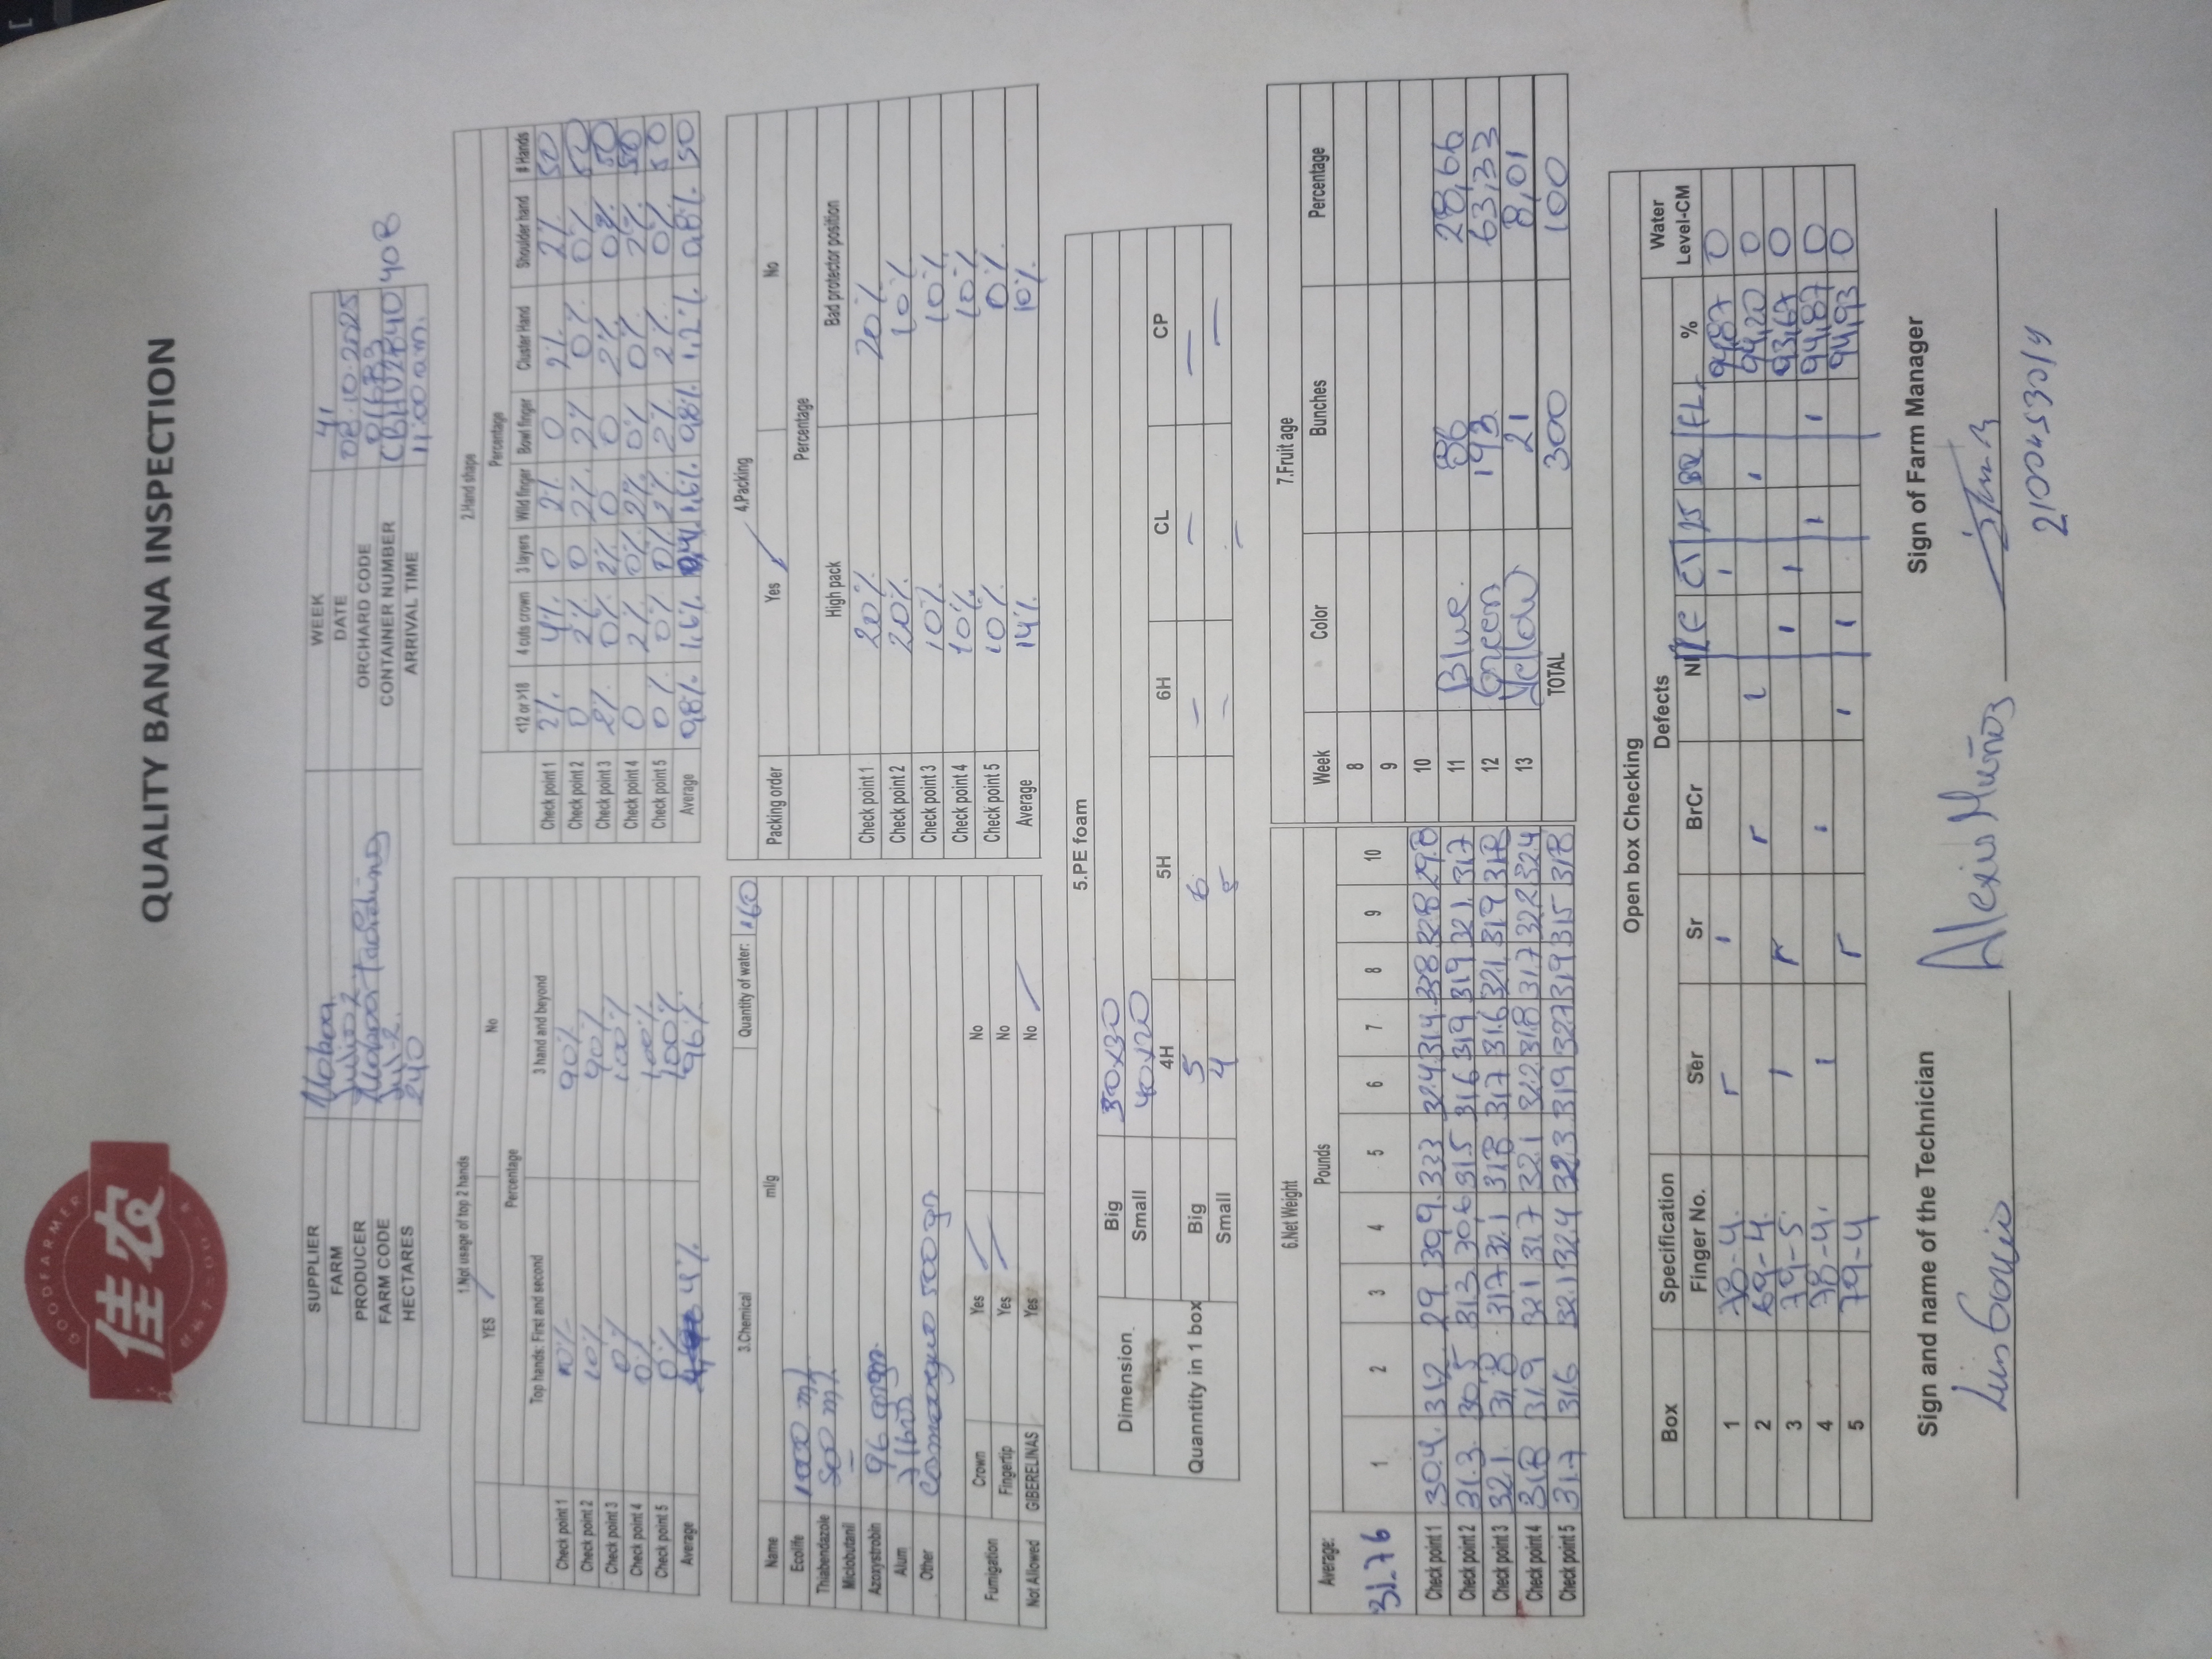 GOODFARMER
佳农
QUALITY BANANA INSPECTION
SUPPLIER Moboa WEEK 41
FARM Julio 2 DATE 08.10.2025
PRODUCER Moboa ORCHARD CODE
FARM CODE Jul-2. CONTAINER NUMBER
HECTARES 240 ARRIVAL TIME 11:00 am.
1.Not usage of top 2 hands
YES No
Percentage
Top hands: First and second 3 hand and beyond
Check point 1 10% 90%
Check point 2 10% 90%
Check point 3 0% 100%
Check point 4 0% 100%
Check point 5 0% 100%
Average 4% 96%
2.Hand shape
Percentage
<12 or >18 4 cuts crown 3 layers Wild finger Bowl finger Cluster Hand Shoulder hand # Hands
Check point 1 2%. 4% 0 2% 0 2% 2% 50
Check point 2 0 2% 0 2% 2% 0% 0% 50
Check point 3 2% 0% 2% 0 0 2% 0% 50
Check point 4 0 2% 0% 2% 0% 0% 2% 50
Check point 5 0% 0% 0% 2% 2% 2% 0% 50
Average 0,8% 1,6% 0,4% 1,6% 0,8% 1,2% 0,8% 50
3.Chemical Quantity of water: 160
Name ml/g
Ecolife 1000 ml
Thiabendazole 500 ml.
Miclobutanil –
Azoxystrobin 96
Alum
Other 500 gr
Fumigation Crown Yes No
Fingertip Yes No
Not Allowed GIBERELINAS Yes No
4.Packing
Packing order Yes No
Percentage
High pack Bad protector position
Check point 1 20% 20%
Check point 2 20% 10%
Check point 3 10% 10%
Check point 4 10% 10%
Check point 5 10% 0%
Average 14% 10%
5.PE foam
Dimension Big 30x30
Small 40x20
4H 5H 6H CL CP
Quanntity in 1 box Big 5 6 – – –
Small 4 5 – – –
6.Net Weight
Average: Pounds
31.76 1 2 3 4 5 6 7 8 9 10
Check point 1 30.4. 31.2 29. 30,9. 333 32.4 31.4 33.8 32.8 29.8
Check point 2 31.3. 30,5 31.3 30,6 31.5 31.6 31.9 31.9 32.1. 31.7
Check point 3 32.1. 31,8 31.7 32.1 31.8 31.7 31.6 32.1 31.9 31.8
Check point 4 31.8 31.9 32.1 31.7 32.1 32.2 31.8 31.7 32.2 32.4
Check point 5 31.7 31.6 32.1 32.4 32.3 31.9 32.7 31.9 31.5 31.8
7.Fruit age
Week Color Bunches Percentage
8
9
10
11 Blue. 86 28,66
12 Green 193 63,33
13 Yellow 21 8,01
TOTAL 300 100
Open box Checking
Box Specification Defects Water
Finger No. Ser Sr BrCr CT BR FL % Level-CM
1 78-4. 94,87 0
2 69-4. 94,20 0
3 79-5 93,67 0
4 78-4. 94,87 0
5 79-4 94,93 0
Sign and name of the Technician Sign of Farm Manager
Luis Garcia Alexis Muñoz